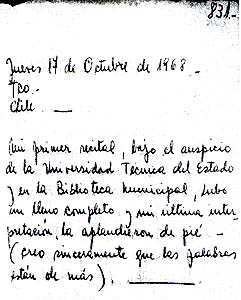 831.-
Jueves 17 de Octubre de 1968.-
Tco.-
Chile.—
Mi primer recital, bajo el auspicio
de la Universidad Técnica del Estado
y en la Biblioteca Municipal, tubo
un lleno completo y mi última inter-
pretación, la aplaudieron de pié.-
(creo sinceramente que las palabras
están de más).